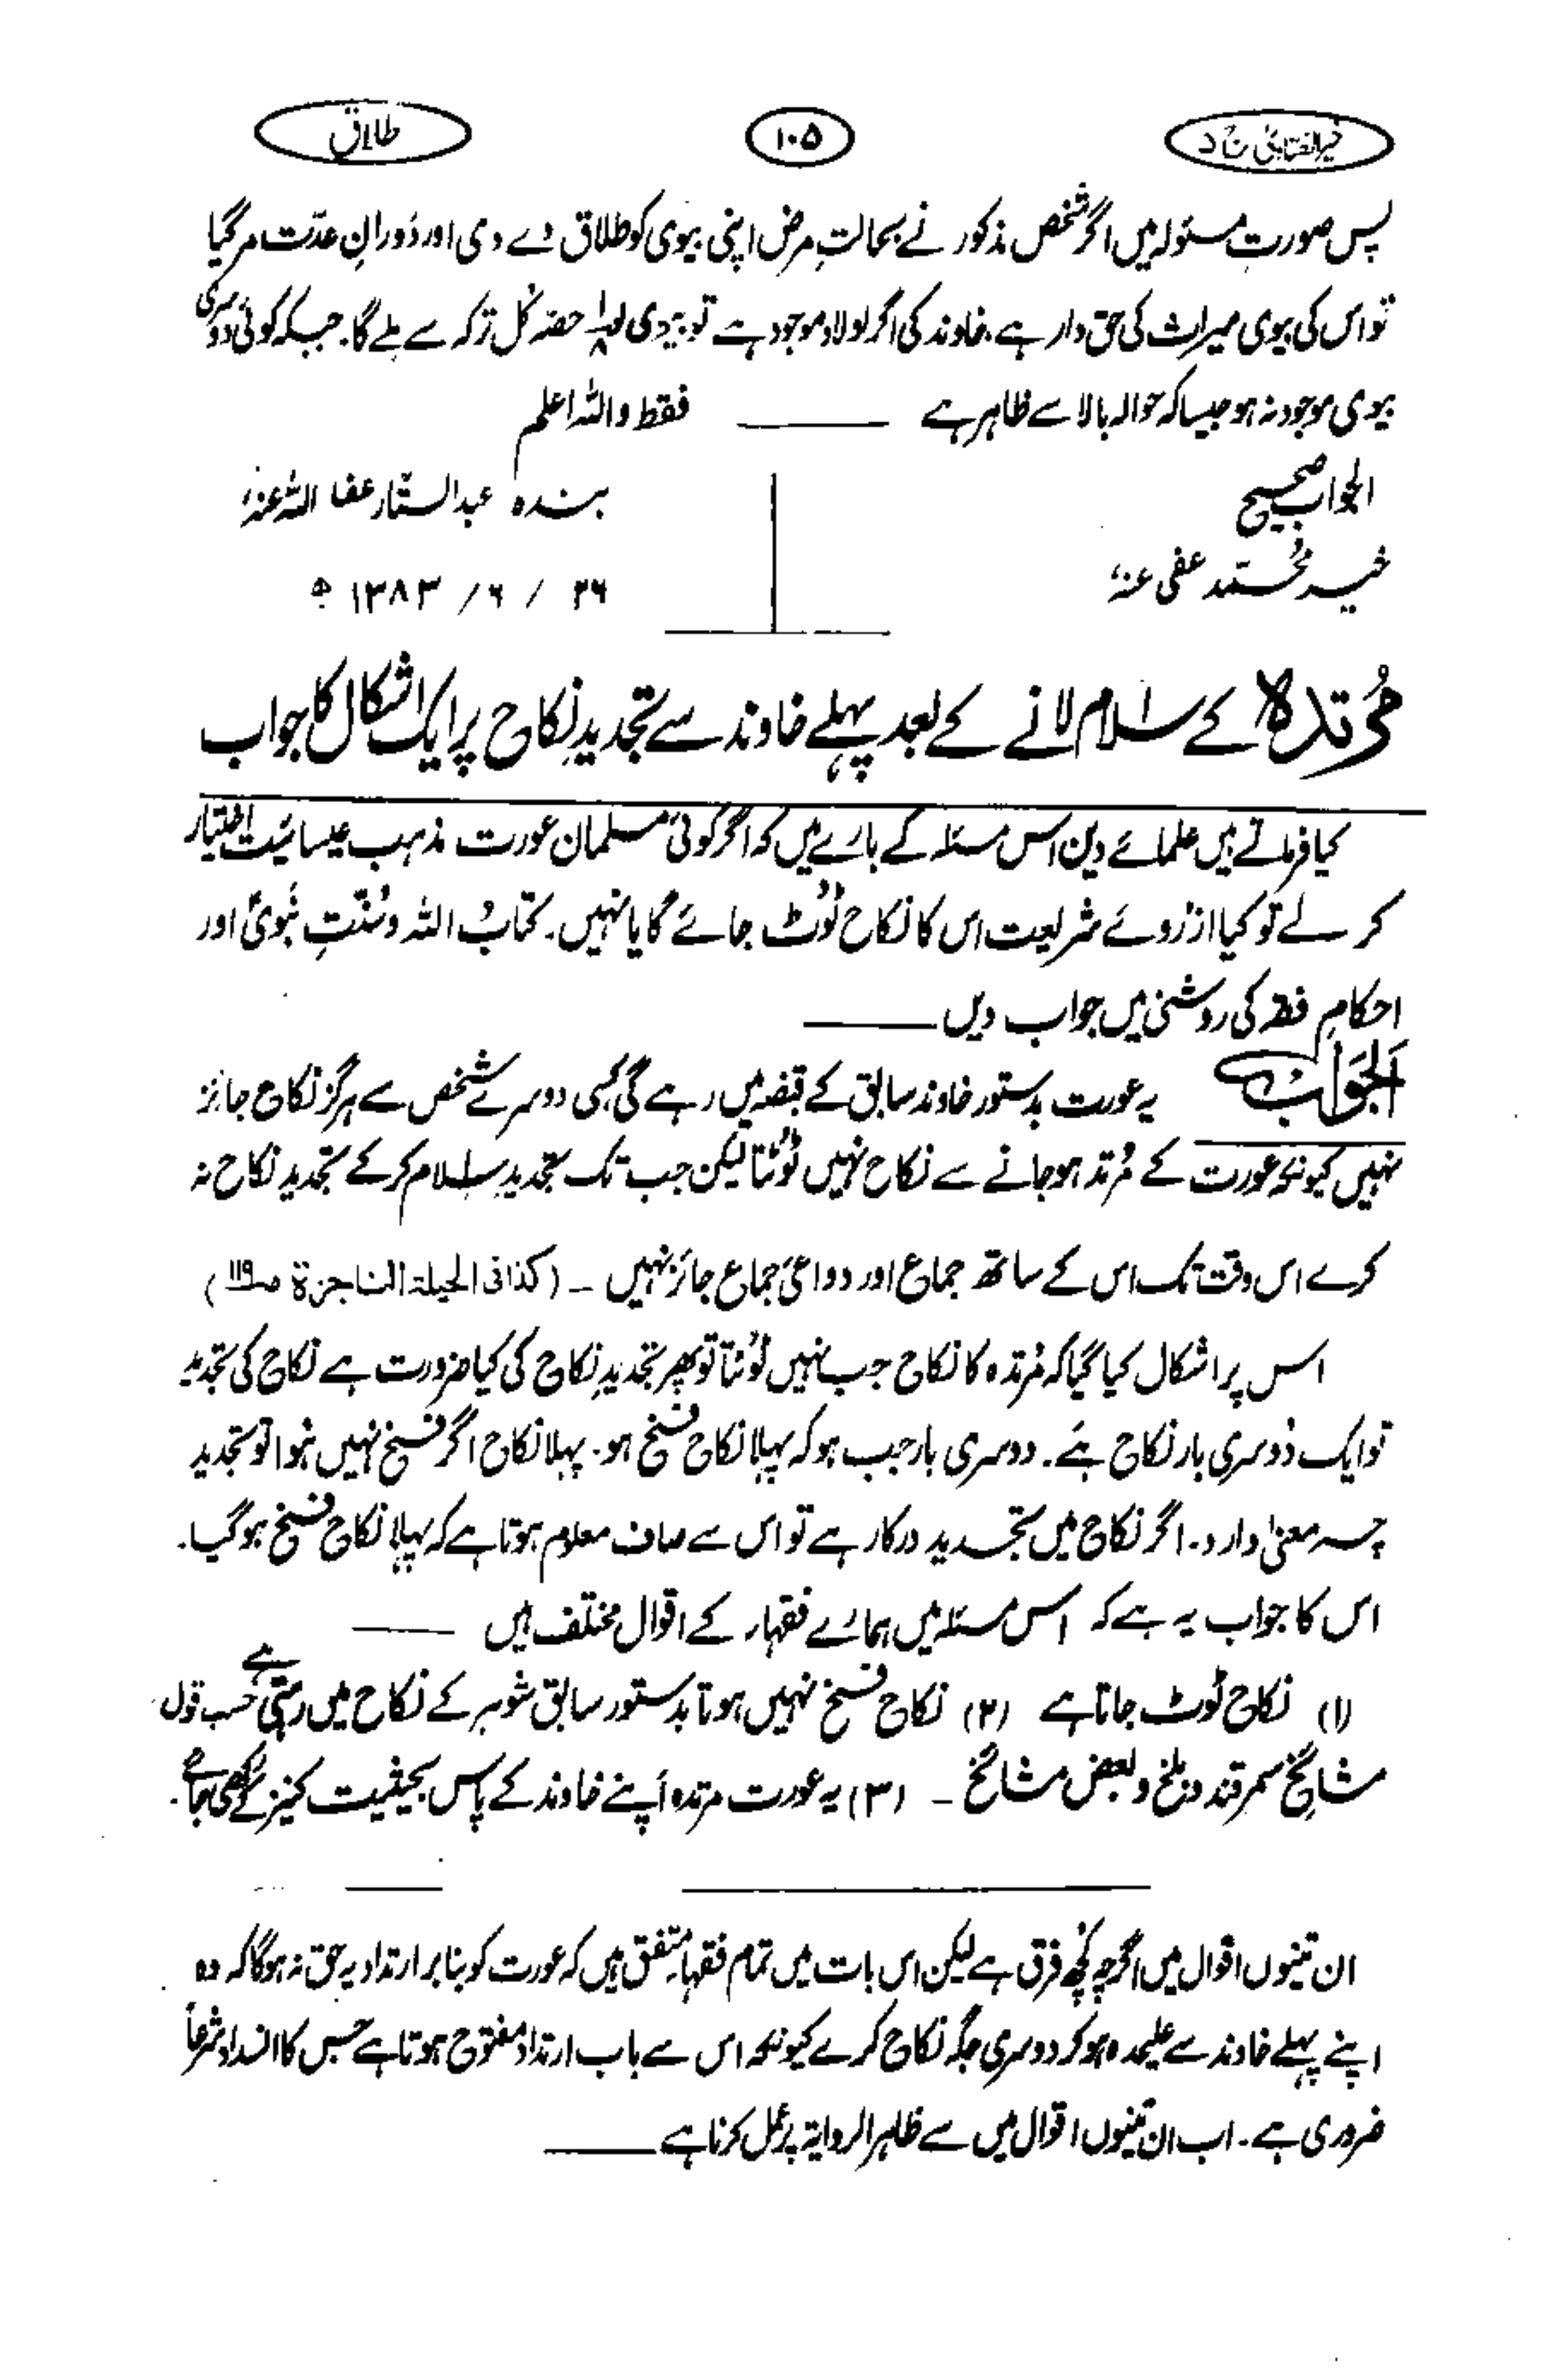 خیر الفتاویٰ ۱۰۵ طلاق
پس صورتِ مسئولہ میں اگر شخص مذکور نے بحالتِ مرض اپنی بیوی کو طلاق دے دی اور دَورانِ عدّت مر گیا
تو اس کی بیوی میراث کی حق دار ہے۔ خاوند کی اگر اولاد موجود ہے تو بیوی کو حصّہ کُل ترکہ سے ملے گا۔ جبکہ کوئی دُوسری
بیوی موجود نہ ہو جیسا کہ حوالہ بالا سے ظاہر ہے ـــــــــ فقط واللہ اعلم
الجواب صحیح بندہ عبدالستّار عفا اللہ عنہٗ
خیر محمّد عفی عنہٗ ۲۶ / ۶ / ۱۳۸۳ ھ
مُرتدہ کے اسلام لانے کے بعد پہلے خاوند سے تجدیدِ نکاح پر ایک اشکال کا جواب
کیا فرماتے ہیں علمائے دین اس مسئلہ کے بارے میں کہ اگر کوئی مسلمان عورت مذہب عیسائیت اختیار
کر لے تو کیا از رُوئے شریعت اس کا نکاح ٹوٹ جائے گا یا نہیں۔ کتابُ اللہ و سُنّتِ نبویؐ اور
احکامِ فقہ کی روشنی میں جواب دیں ـــــــــ
الجَوَاب یہ عورت بدستور خاوند سابق کے قبضہ میں رہے گی کسی دوسرے شخص سے ہرگز نکاح جائز
نہیں کیونکہ عورت کے مُرتد ہو جانے سے نکاح نہیں ٹوٹتا لیکن جب تک تجدیدِ اسلام کر کے تجدیدِ نکاح نہ
کرے اس وقت تک اس کے ساتھ جماع اور دواعیٔ جماع جائز نہیں ۔ (کذافی الحیلۃ الناجزۃ صـ۱۱۹)
اس پر اشکال کیا گیا کہ مُرتدہ کا نکاح جب نہیں ٹوٹتا تو پھر تجدیدِ نکاح کی کیا ضرورت ہے نکاح کی تجدید
تو ایک دُوسری بار نکاح ہے۔ دوسری بار جب ہو کہ پہلا نکاح فسخ ہو۔ پہلا نکاح اگر فسخ نہیں ہُوا تو تجدید
چہ معنیٰ دارد۔ اگر نکاح میں تجدید درکار ہے تو اس سے صاف معلوم ہوتا ہے کہ پہلا نکاح فسخ ہو گیا۔
اس کا جواب یہ ہے کہ اس مسئلہ میں ہمارے فقہاء کے اقوال مختلف ہیں ـــــــــ
(۱) نکاح ٹوٹ جاتا ہے (۲) نکاح فسخ نہیں ہوتا بدستور سابق شوہر کے نکاح میں رہتی ہے حسب قول
مشائخ سمرقند و بلخ و بعض مشائخ ۔ (۳) یہ عورت مرتدہ اپنے خاوند کے پاس بحیثیت کنیز کے رکھی جائے۔
ان تینوں اقوال میں اگرچہ کچھ فرق ہے لیکن اس بات میں تمام فقہاء متفق ہیں کہ عورت کو بنا بر ارتداد یہ حق نہ ہوگا کہ وہ
اپنے پہلے خاوند سے علیحدہ ہو کر دوسری جگہ نکاح کرے کیونکہ اس سے باب ارتداد مفتوح ہوتا ہے جس کا انسداد شرعاً
ضروری ہے۔ اب ان تینوں اقوال میں سے ظاہر الروایۃ پر عمل کرنا ہے ـــــــــ